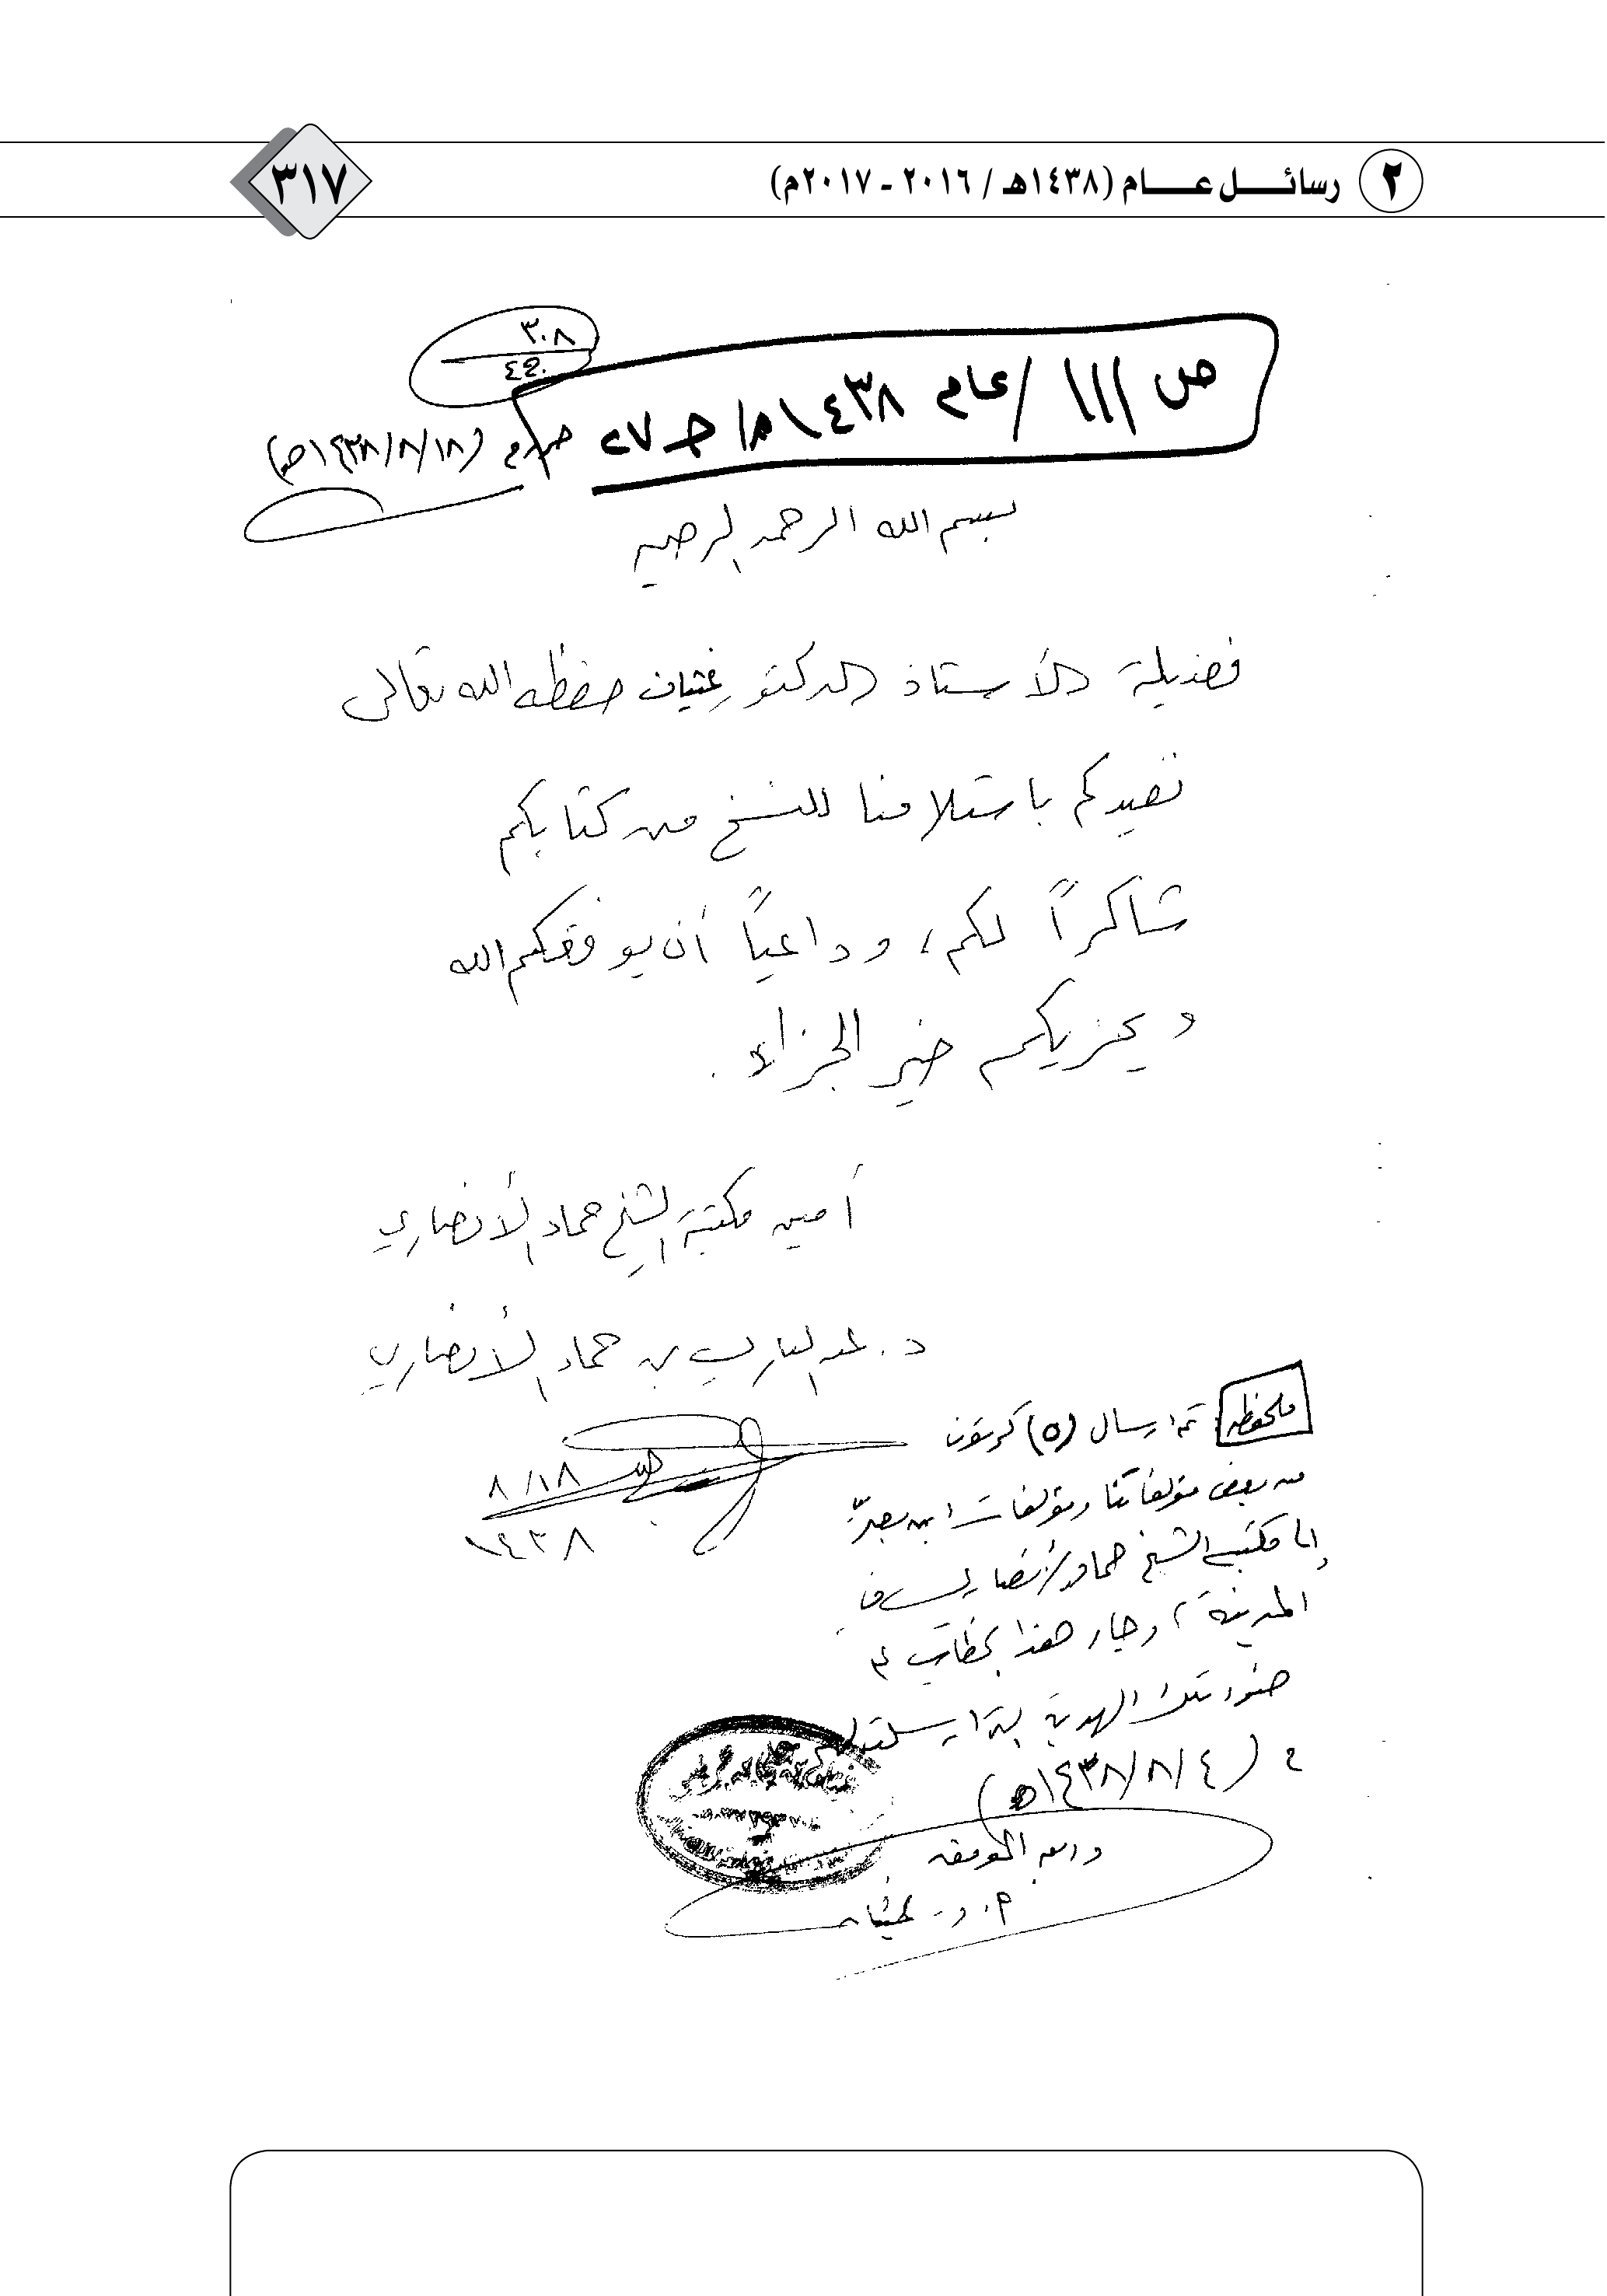 ٢ رسائل عام (١٤٣٨هـ / ٢٠١٦ - ٢٠١٧م) ٣١٧
٣٠٨
ص ١١١ / عام ١٤٣٨هـ / جـ ٢٧
(١٨/٨/١٤٣٨هـ)
بسم الله الرحمن الرحيم
فضيلة الأستاذ الدكتور غيثان حفظه الله تعالى
نفيدكم باستلامنا للنسخ من كتابكم
شاكراً لكم، وداعياً أن يوفقكم الله
ويجزيكم خير الجزاء.
أمين مكتبة الشيخ حماد الأنصاري
د. عبدالباري بن حماد الأنصاري
١٨/٨
١٤٣٨
ملحوظة تم إرسال (٥) كرتون
من بعض مؤلفاتنا ومؤلفات ابن
إلى مكتبة الشيخ حماد الأنصاري في
المدينة، وجاء هذا خطاب
تلك الهدية
في (٤/٨/١٤٣٨هـ)
والله الموفق
أ. د. غيثان